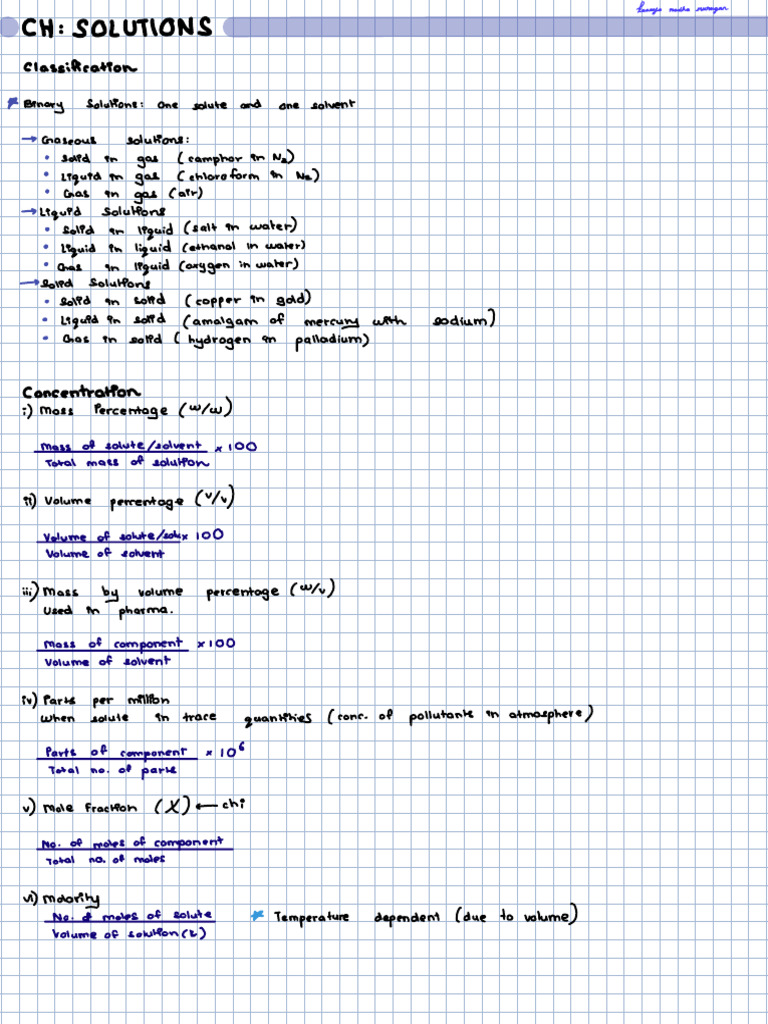 CH: SOLUTIONS
Classification
* Binary Solutions: One solute and one solvent
→ Gaseous solutions:
• Solid in gas (camphor in N₂)
• Liquid in gas (chloroform in N₂)
• Gas in gas (air)
→ Liquid Solutions
• Solid in liquid (salt in water)
• Liquid in liquid (ethanol in water)
• Gas in liquid (oxygen in water)
→ Solid Solutions
• Solid in solid (copper in gold)
• Liquid in solid (amalgam of mercury with sodium)
• Gas in solid (hydrogen in palladium)
Concentration
i) Mass Percentage (w/w)
Mass of solute/solvent × 100
Total mass of solution
ii) Volume percentage (v/v)
Volume of solute/solv × 100
Volume of solvent
iii) Mass by volume percentage (w/v)
Used in pharma.
Mass of component × 100
Volume of solvent
iv) Parts per million
When solute in trace quantities (conc. of pollutants in atmosphere)
Parts of component × 10⁶
Total no. of parts
v) Mole Fraction (X) ← chi
No. of moles of component
Total no. of moles
vi) Molarity
No. of moles of solute * Temperature dependent (due to volume)
Volume of solution (L)